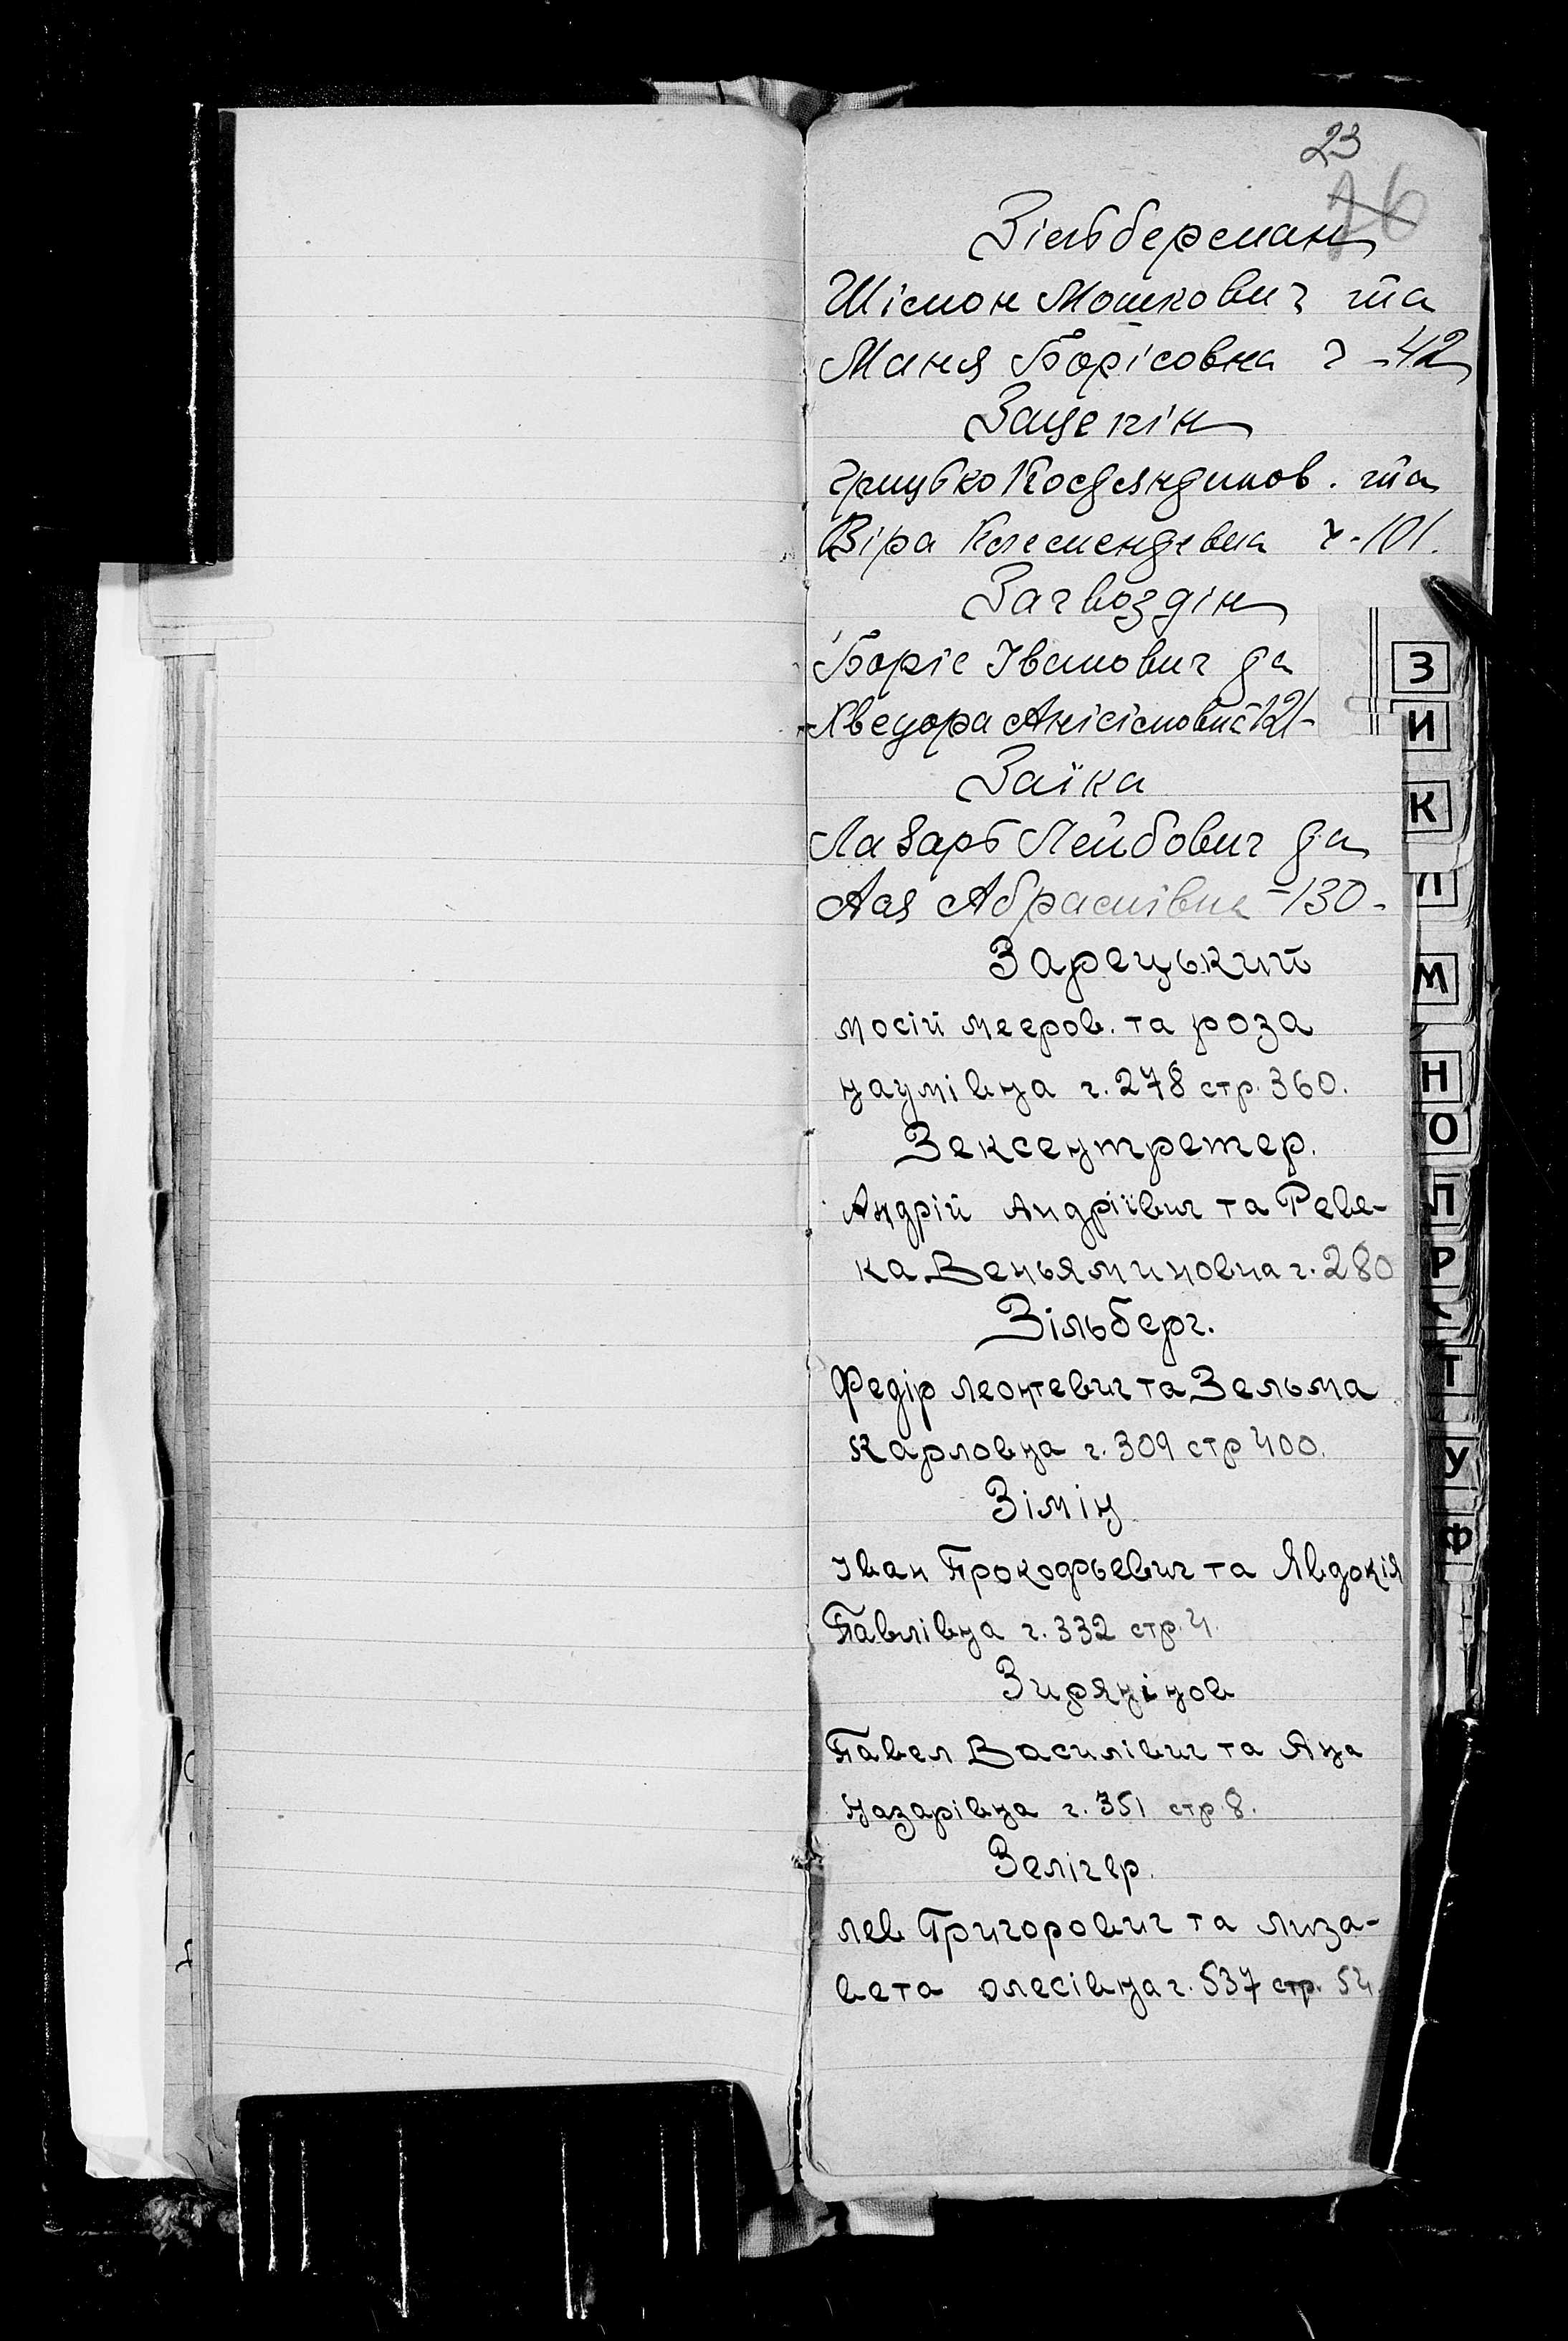 23
26
Зільберман
Шімон Мошкович та
Маня Борісовна г -42
Защепін
Грицько Косдяндинов. та
Віра Клемендевна г-101.
Загвоздін
Боріс Іванович да
Хведора Анісімовна 121-
Заїка
Лазарь Лейбович да
Ася Абрамівна -130-
Зарецький
мосій мееров. та роза
наумівна г. 278 стр. 360.
Зексентретер.
Андрій Андріївич та Реве-
ка Веньяминовна г. 280
Зільберг.
Федір леонтевич та Зельма
карловна г. 309 стр 400.
Зімін
Іван Прокофьевич та Явдокія
Павлівна г. 332 стр. 4.
Зирянінов
Павел Василівич та Яна
назарівна г. 351 стр 8.
Зелігер.
лев Григорович та лиза-
вета олесівна г. 537 стр. 54.
З
И
К
Л
М
Н
О
П
Р
Т
У
Ф